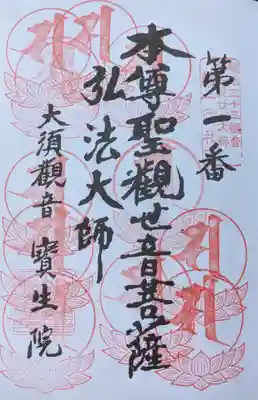 第一番
本尊聖觀世音菩薩
弘法大師
大須觀音 寶生院